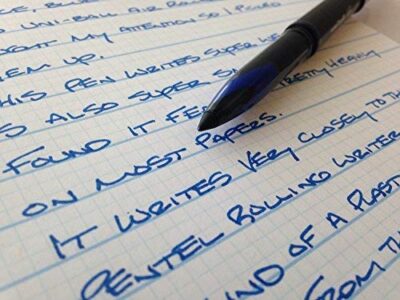 BLUE,
UNI-BALL AIR
MY ATTENTION SO I PICKED
THEM UP.
THIS PEN WRITES SUPER
ALSO SUPER
FOUND IT PRETTY HEAVILY
ON MOST PAPERS.
IT WRITES VERY CLOSELY TO TH
PENTEL ROLLING WRITER
OF A PLAST
FROM TH